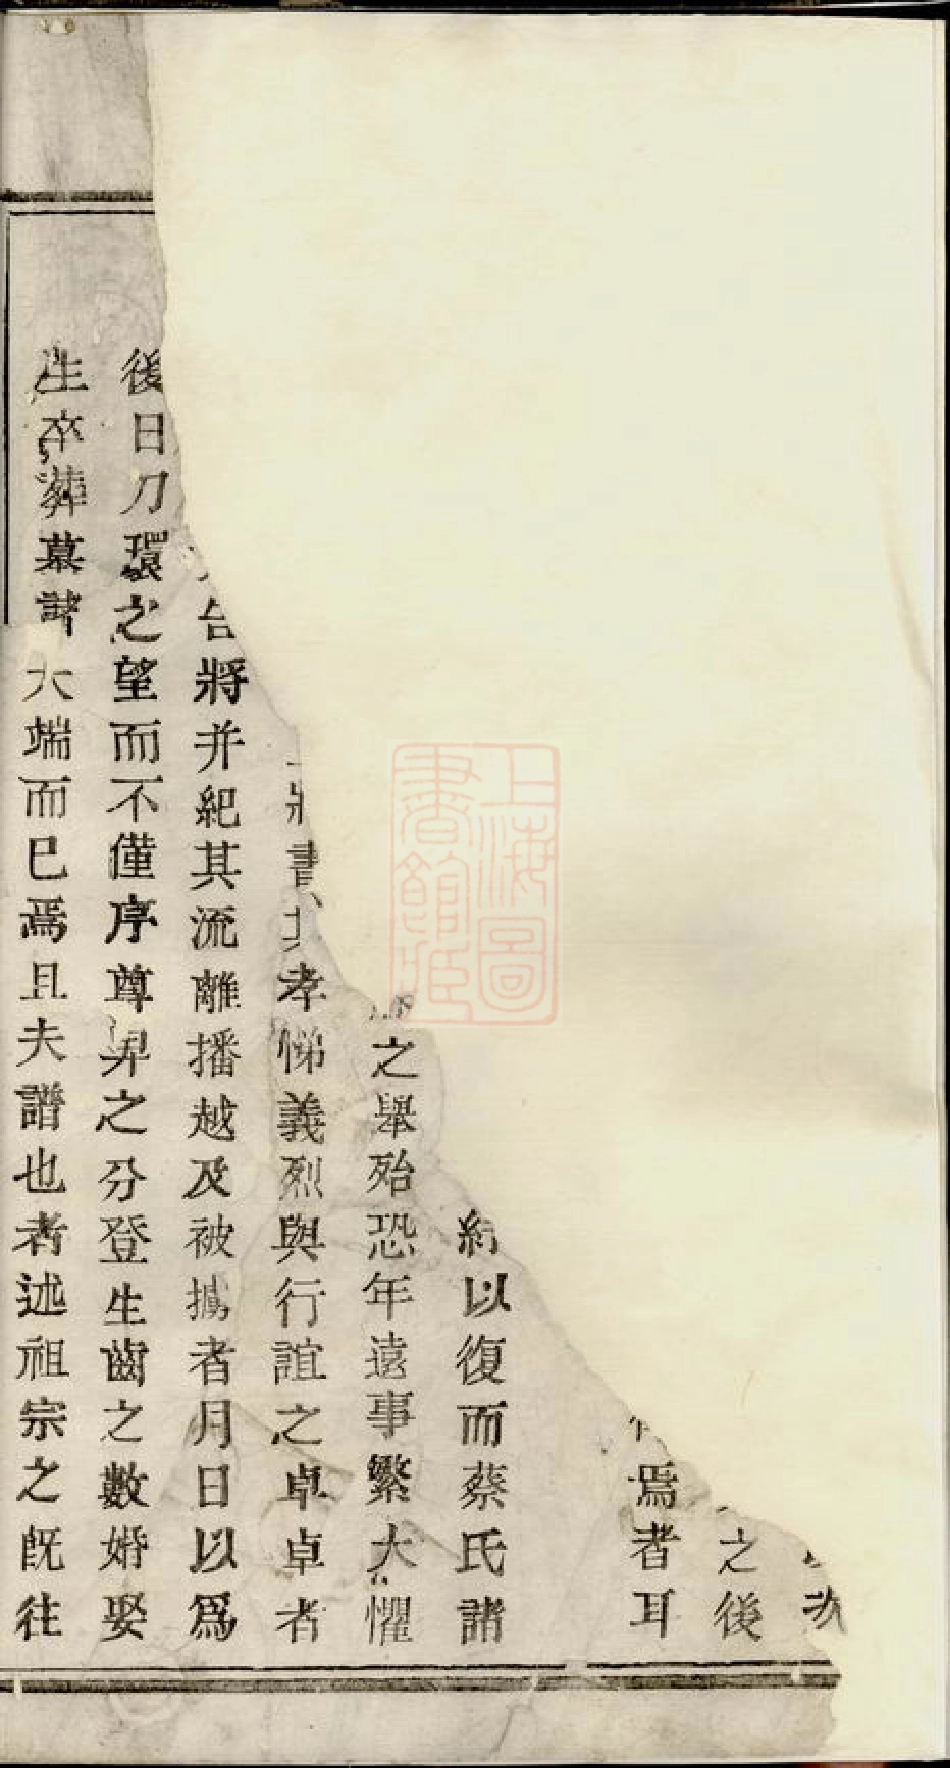 次
之後
焉者耳
約以復而蔡氏諸
之舉殆恐年遠事繁大懼
書其孝悌義烈與行誼之卓卓者
台將并紀其流離播越及被擄者月日以爲
後日刀環之望而不僅序尊卑之分登生齒之數婚娶
生卒葬墓諸大端而已焉且夫譜也者述祖宗之既往
上海圖書館藏